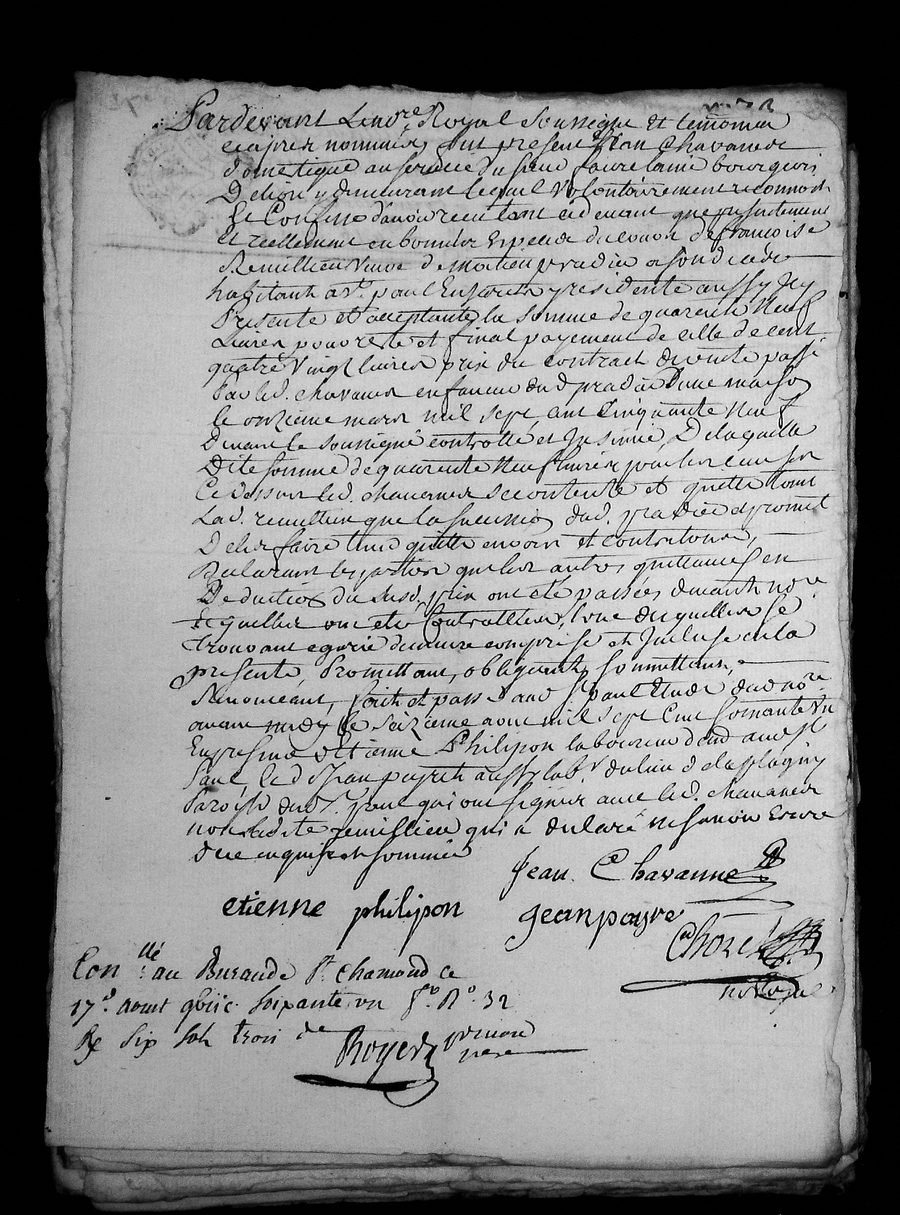 Pardevant Le no.re Royal Soussigné et temoins
cy apres nommés, fut present Jean Chavanne
domestique au service du sieur faure laine bourgeois
De lion y demeurant lequel Volontairement reconnoit
Et Confesse d'avoir receu tant cy devant que presentement
Et reellement en bonnes Especes du cours de françoise
Remillieu veuve de mathieu pradier
habitant a St. paul En Jarez y residente aussy Icy
Presente et acceptante la somme de quarente Neuf
Livres pour reste et final payement de celle de cent
quatre Vingt livres prix du contract de vente passé
Par led. chavanne en faveur dud pradier d'une maison
le onzieme mars mil sept cent Cinquante Neuf
Devant le soussigné controllé et Insinué, De laquelle
Dite somme de quarente Neuf livres
Ce dessus led. chavanne se contente et quitte tant
Lad. remillieu que la sucession dud. pradier et promet
De les faire tenir quitte envers et contre tous,
Declarant les parties que les autres quittances en
Deduction du susd. prix ont été passées devant no.re
Lesquelles ont été Controllées, l'une desquelles se
trouvant egarée demeure comprise et Incluse en la
presente, Promettant, obligeant, soumettant,
Renonceant, fait et passé aud St. paul Etude dud no.re
avant midy le seizieme aout mil sept Cent soixante Un
En presence d'Etienne Philipon laboureur dud aud St
Paul et de Jean payre aussy lab.r du lieu de la plagny
Paroisse dud St. paul qui ont signés avec led. chavanne
non ladite remillieu qui a declaré ne savoir Ecrire
de ce enquise et sommée
Jean Chavanne
etienne philipon jean payre
Choré
notaire
Con.llé au Bureau de St. chamond ce
17.e aout 9bijc soixante un f.o R.o 32
Rx six sols trois de
Royer